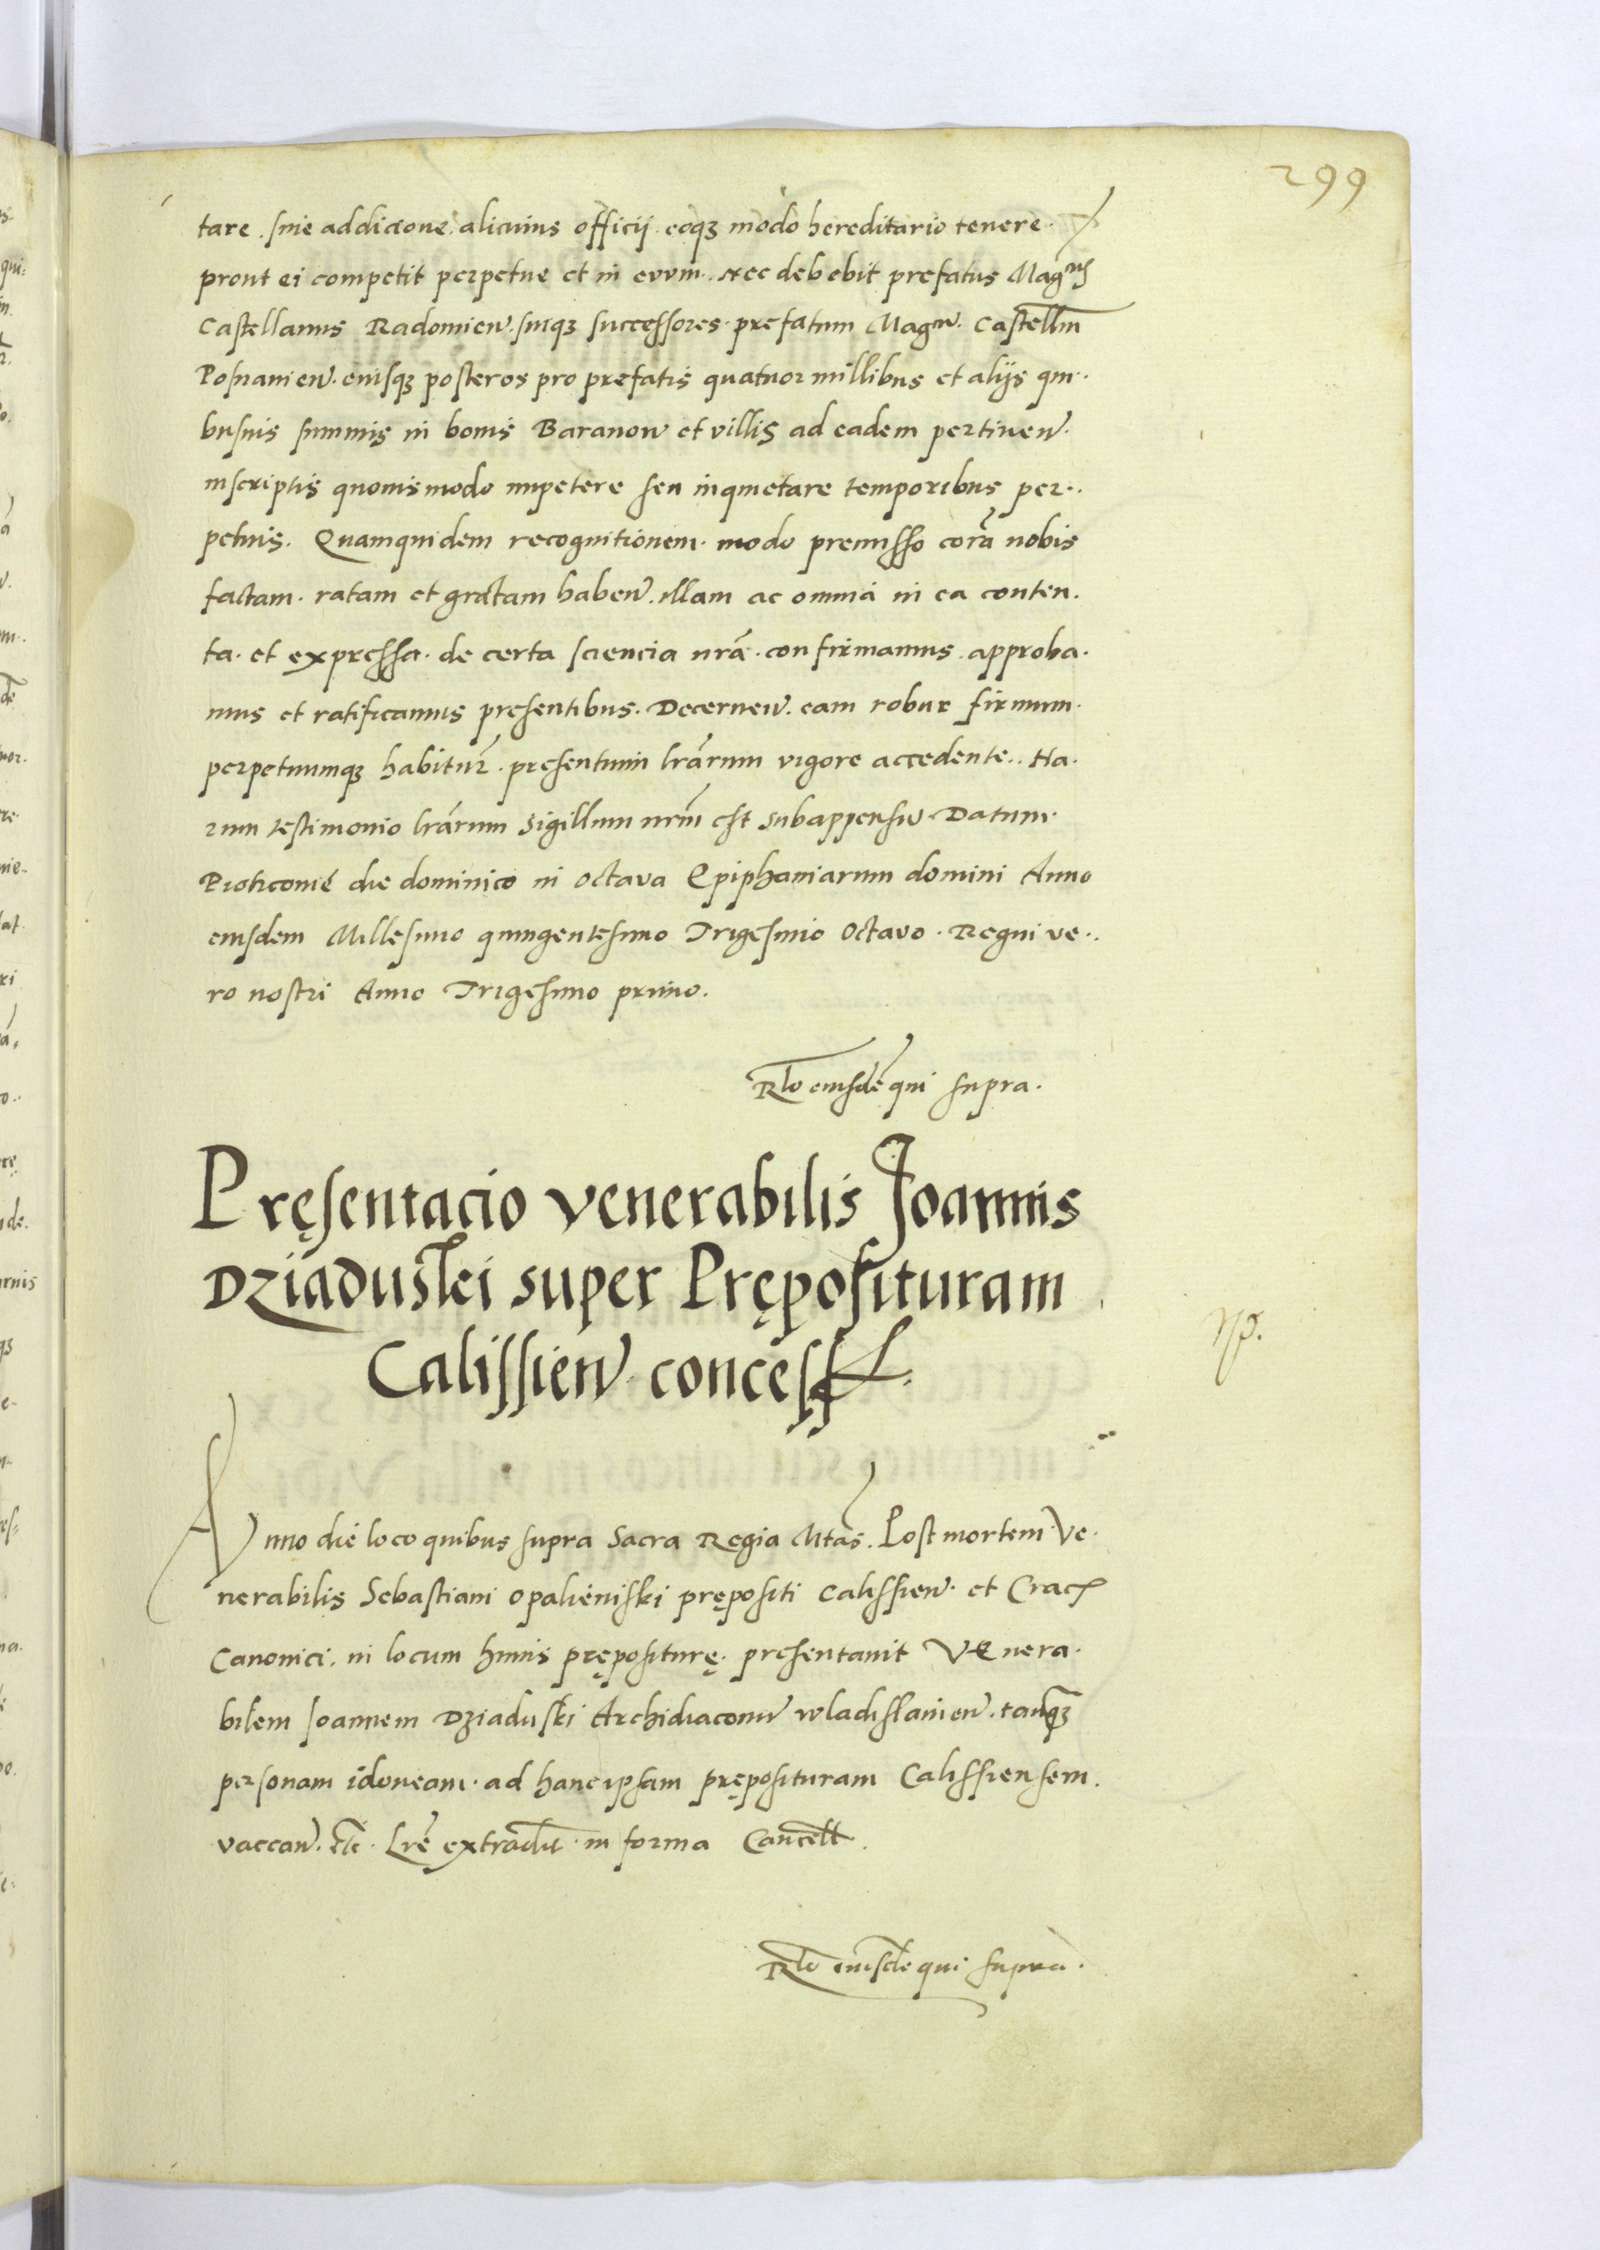 299
tare. sine addicione alicuius officij eoqꝫ modo hereditario tenere.
prout ei competit perpetue et in evum. Nec debebit prefatus Mag͂cus
Castellanus Radomien̄. suiqꝫ successores. prefatum Magn̄. Castell͂m
Posnanien̄. eiusqꝫ posteros pro prefatis quatuor millibus et alijs qui.
busuis summis in bonis Baranow et villis ad eadem pertinen̄.
inscriptis quouismodo impetere seu inquietare temporibus per..
petuis. Quamquidem recognitionem. modo premisso corā nobis
factam. ratam et gratam haben̄. illam ac omnia in ea conten.
ta. et expressa. de certa sciencia nr̄a. confirmamus. approba.
mus et ratificamus presentibus. Decernen̄. eam robur firmum.
perpetuumqꝫ habitur̄. presentium lr̄arum vigore accedente.. Ha.
rum testimonio lr̄arum Sigillum nr̄m est subappensū Datum.
Pioticouie die dominico in octava Epiphaniarum domini Anno
eiusdem Millesimo quingentesimo Trigesimo Octavo. Regni ve..
ro nostri Anno Trigesimo primo.
Rl̄o eiusdē qui supra.
Pręsentacio venerabilis Joannis
Dziadusſkei super Pręposituram
Calissien̄. concess.
Anno die loco quibus supra Sacra Regia Mtās. Post mortem Ve.
nerabilis Sebastiani Opalieniski prępositi Calissien̄. et Crac̄
Canonici. in locum huius prępositurę. presentauit Venera.
bilem Joannem Dziaduski Archidiaconū wladislauien̄. tanqꝫ
personam idoneam. ad hanc ipsam pręposituram Calissiensem.
vaccan̄. etc̄. Lr̄e extradit̄. in forma Cancell̄.
Rl̄o eiusdē qui supra.